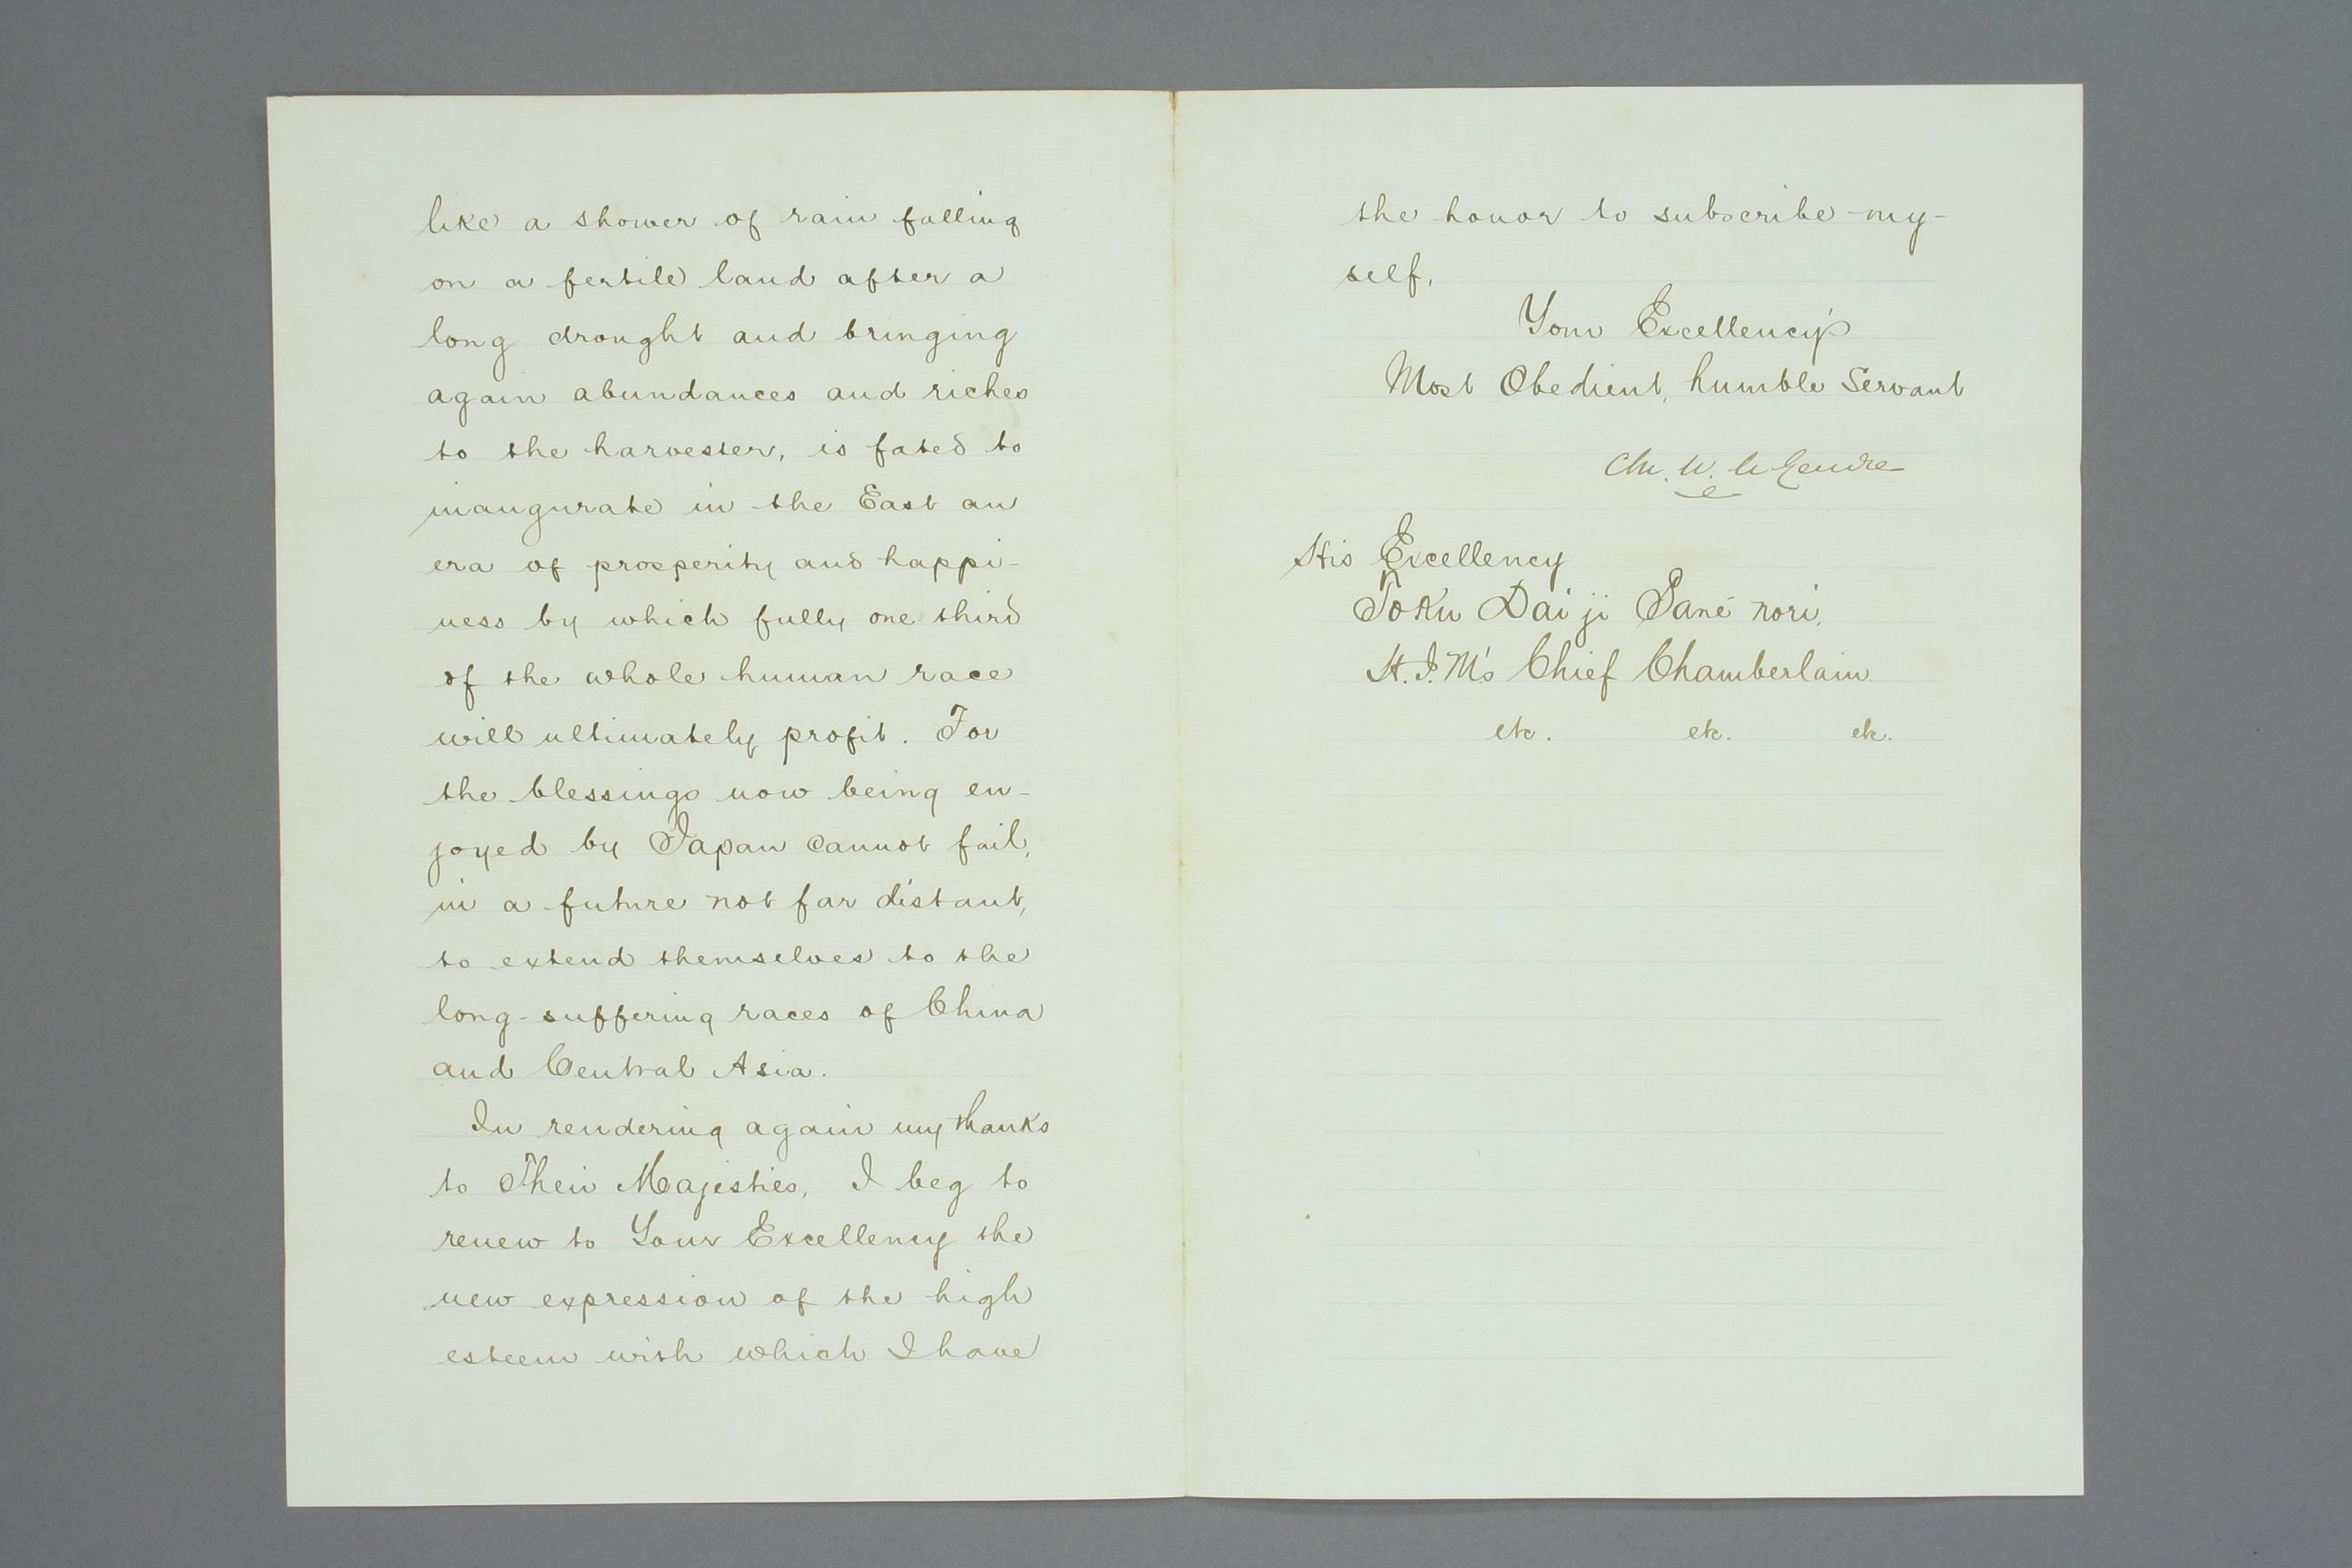 like a shower of rain falling
on a fertile land after a
long drought and bringing
again abundances and riches
to the harvester, is fated to
inaugurate in the East an
era of prosperity and happi-
ness by which fully one third
of the whole human race
will ultimately profit. For
the blessings now being en-
joyed by Japan cannot fail,
in a future not far distant,
to extend themselves to the
long-suffering races of China
and Central Asia.
In rendering again my thanks
to Their Majesties, I beg to
renew to Your Excellency the
new expression of the high
esteem with which I have
the honor to subscribe my-
self,
Your Excellency's
Most Obedient, humble Servant
Ch. W. Le Gendre
His Excellency
Toku Dai ji Sané nori,
H. I. M's Chief Chamberlain
etc. etc. etc.